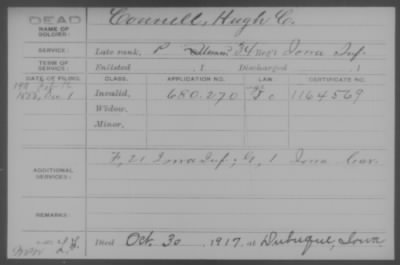 DEAD
NAME OF SOLDIER:
Connell, Hugh C.
SERVICE:
Late rank, P 34 Reg't Iowa Inf.
TERM OF SERVICE:
Enlisted , 1 Discharged , 1
DATE OF FILING.
CLASS.
APPLICATION NO.
LAW.
CERTIFICATE NO.
Invalid, 680.270 1164569
Widow,
Minor,
ADDITIONAL SERVICES:
F, 21 Iowa Inf; G, 1 Iowa Cav.
REMARKS:
Died Oct. 30, 1917, at Dubuque, Iowa.